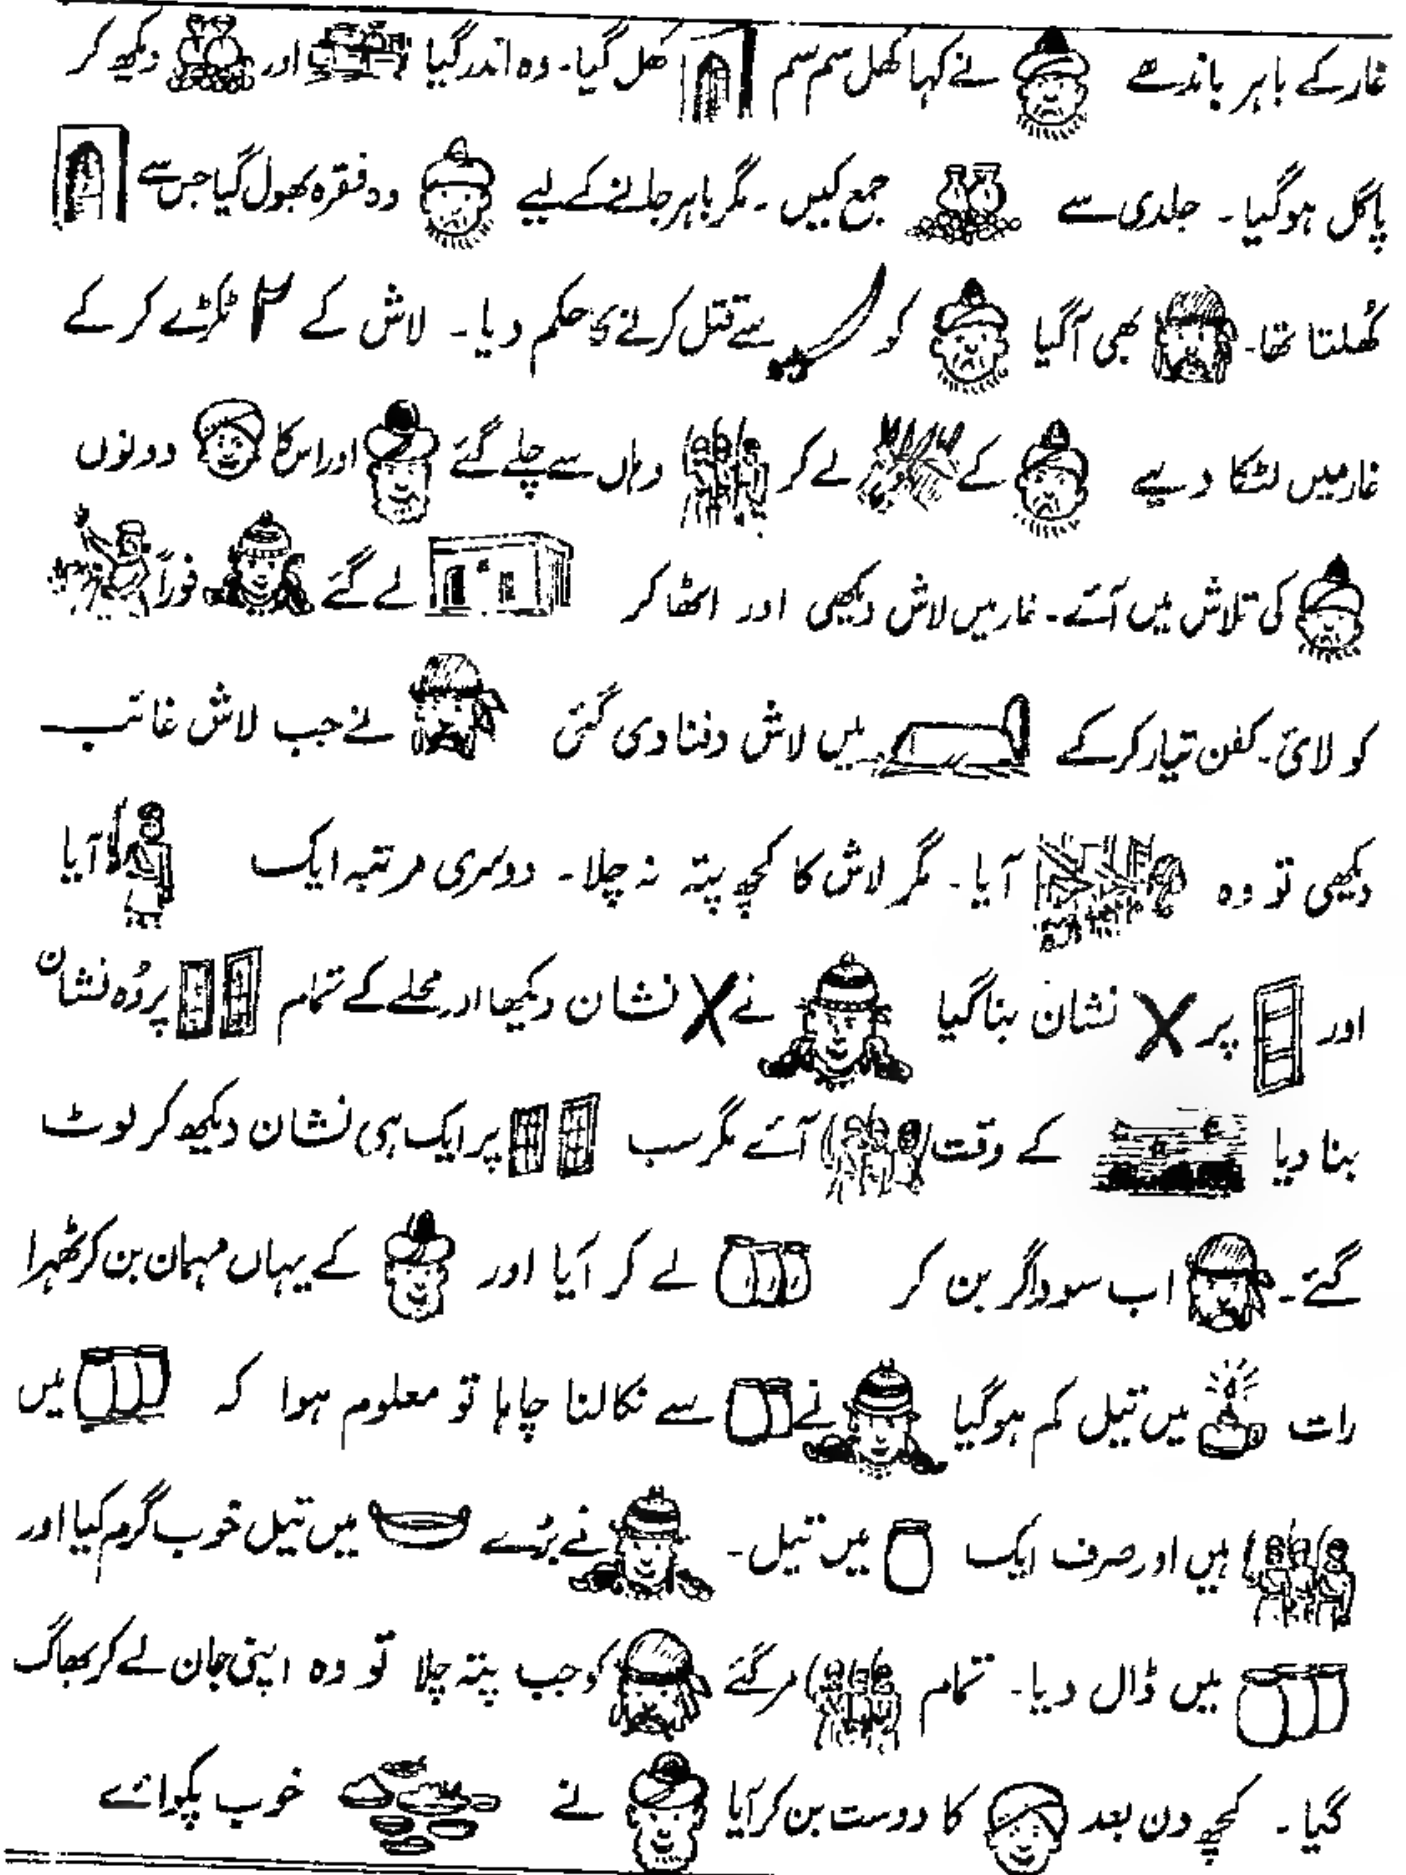 غار کے باہر باندھے نے کہا کھل سم سم کھل گیا۔ وہ اندر گیا اور دیکھ کر
پاگل ہوگیا۔ جلدی سے جمع کیں۔ مگر باہر جانے کے لیے وہ فقرہ بھول گیا جس سے
کُھلتا تھا۔ بھی آگیا کو سے قتل کرنے کا حکم دیا۔ لاش کے ۴ ٹکڑے کر کے
غار میں لٹکا دیے کے لے کر وہاں سے چلے گئے اور اس کا دونوں
کی تلاش میں آئے۔ غار میں لاش دیکھی اور اٹھا کر لے گئے فوراً
کو لائی۔ کفن تیار کر کے میں لاش دفنا دی گئی نے جب لاش غائب
دیکھی تو وہ آیا۔ مگر لاش کا کچھ پتہ نہ چلا۔ دوسری مرتبہ ایک آیا
اور پر X نشان بنا گیا نے X نشان دیکھا اور محلے کے تمام پر وُہ نشان
بنا دیا کے وقت آئے مگر سب پر ایک ہی نشان دیکھ کر لوٹ
گئے۔ اب سوداگر بن کر لے کر آیا اور کے یہاں مہمان بن کر ٹھہرا
رات میں تیل کم ہوگیا نے سے نکالنا چاہا تو معلوم ہوا کہ میں
ہیں اور صرف ایک میں تیل۔ نے بڑے میں تیل خوب گرم کیا اور
میں ڈال دیا۔ تمام مر گئے کو جب پتہ چلا تو وہ اپنی جان لے کر بھاگ
گیا۔ کچھ دن بعد کا دوست بن کر آیا نے خوب پکوائے